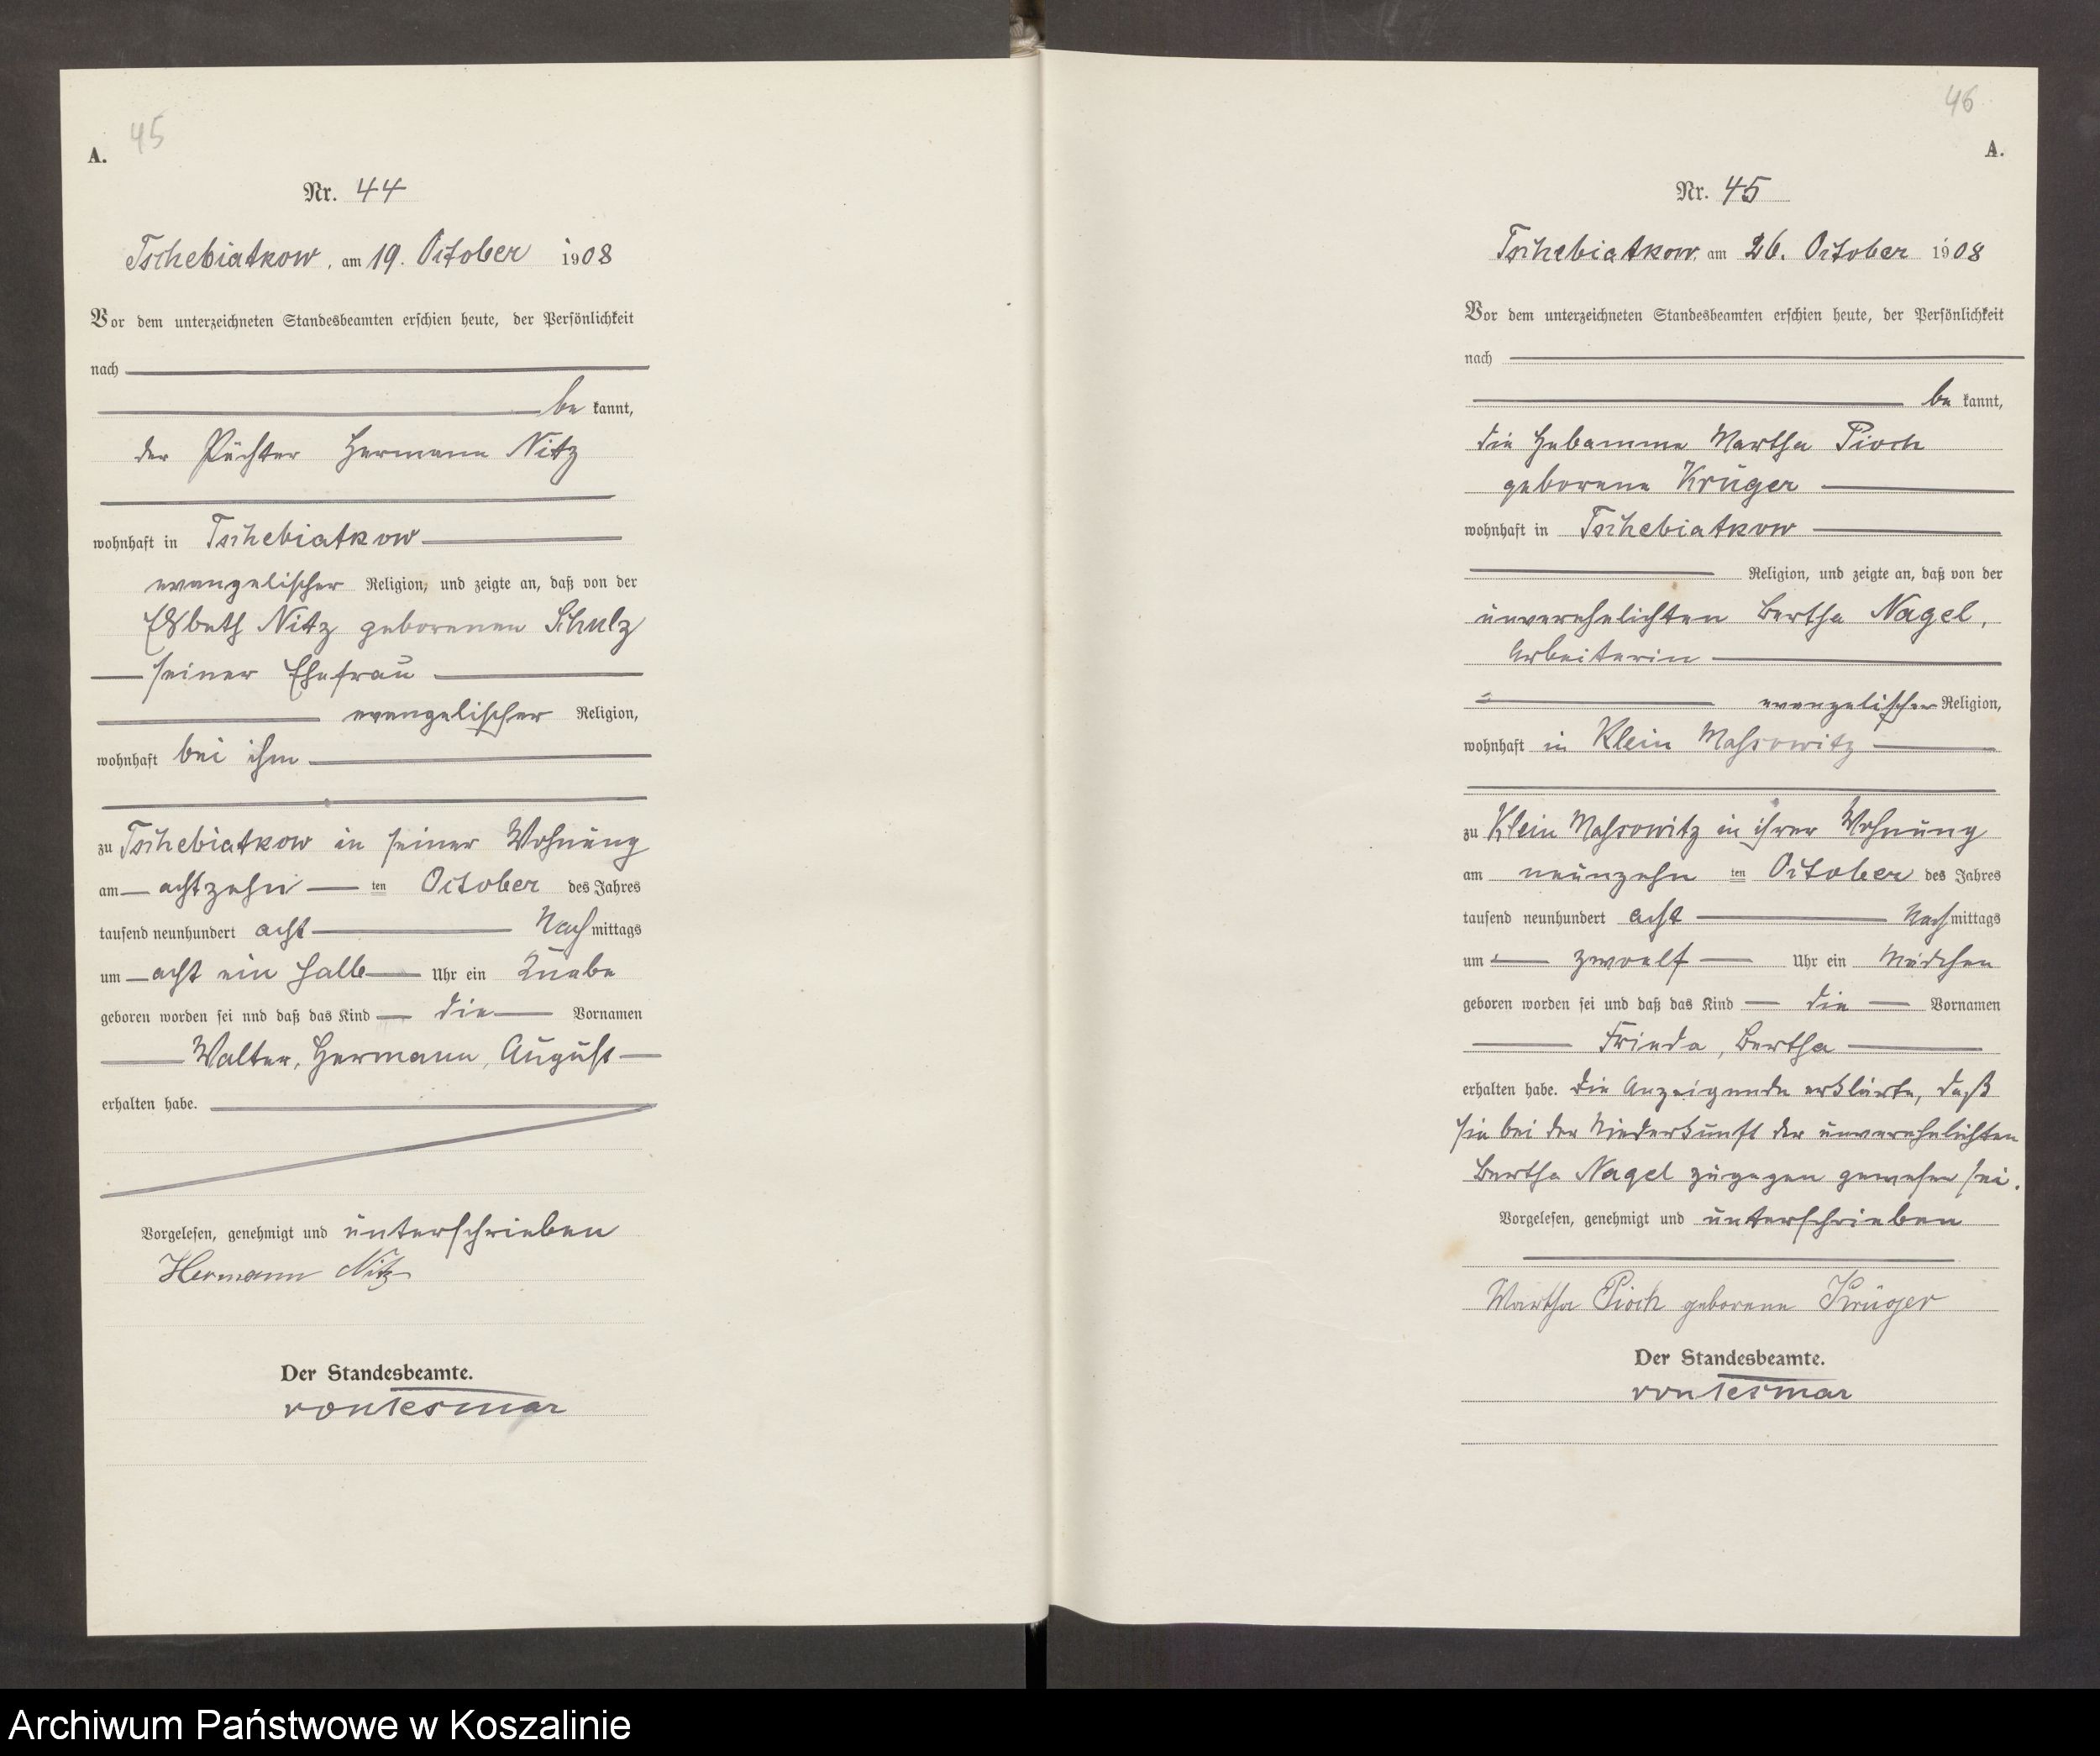 45
A.
Nr. 44
Tschebiatkow, am 19. October 1908
Vor dem unterzeichneten Standesbeamten erschien heute, der Persönlichkeit
nach
be kannt,
der Pächter Hermann Nitz
wohnhaft in Tschebiatkow
evangelischer Religion, und zeigte an, daß von der
Elsbeth Nitz geborenen Schulz
seiner Ehefrau
evangelischer Religion,
wohnhaft bei ihm
zu Tschebiatkow in seiner Wohnung
am achtzehn ten October des Jahres
tausend neunhundert acht Nach mittags
um acht ein halb Uhr ein Knabe
geboren worden sei und daß das Kind die Vornamen
Walter, Hermann, August
erhalten habe.
Vorgelesen, genehmigt und unterschrieben
Hermann Nitz
Der Standesbeamte.
von Tesmar
46
A.
Nr. 45
Tschebiatkow, am 26. October 1908
Vor dem unterzeichneten Standesbeamten erschien heute, der Persönlichkeit
nach
be kannt,
die Hebamme Martha Pioch
geborene Krüger
wohnhaft in Tschebiatkow
Religion, und zeigte an, daß von der
unverehelichten Bertha Nagel,
Arbeiterin
evangelischer Religion,
wohnhaft in Klein Massowitz
zu Klein Massowitz in ihrer Wohnung
am neunzehn ten October des Jahres
tausend neunhundert acht Nach mittags
um zwoelf Uhr ein Mädchen
geboren worden sei und daß das Kind die Vornamen
Frieda, Bertha
erhalten habe. Die Anzeigende erklärte, daß
sie bei der Niederkunft der unverehelichten
Bertha Nagel zugegen gewesen sei.
Vorgelesen, genehmigt und unterschrieben
Martha Pioch geborene Krüger
Der Standesbeamte.
von Tesmar
Archiwum Państwowe w Koszalinie